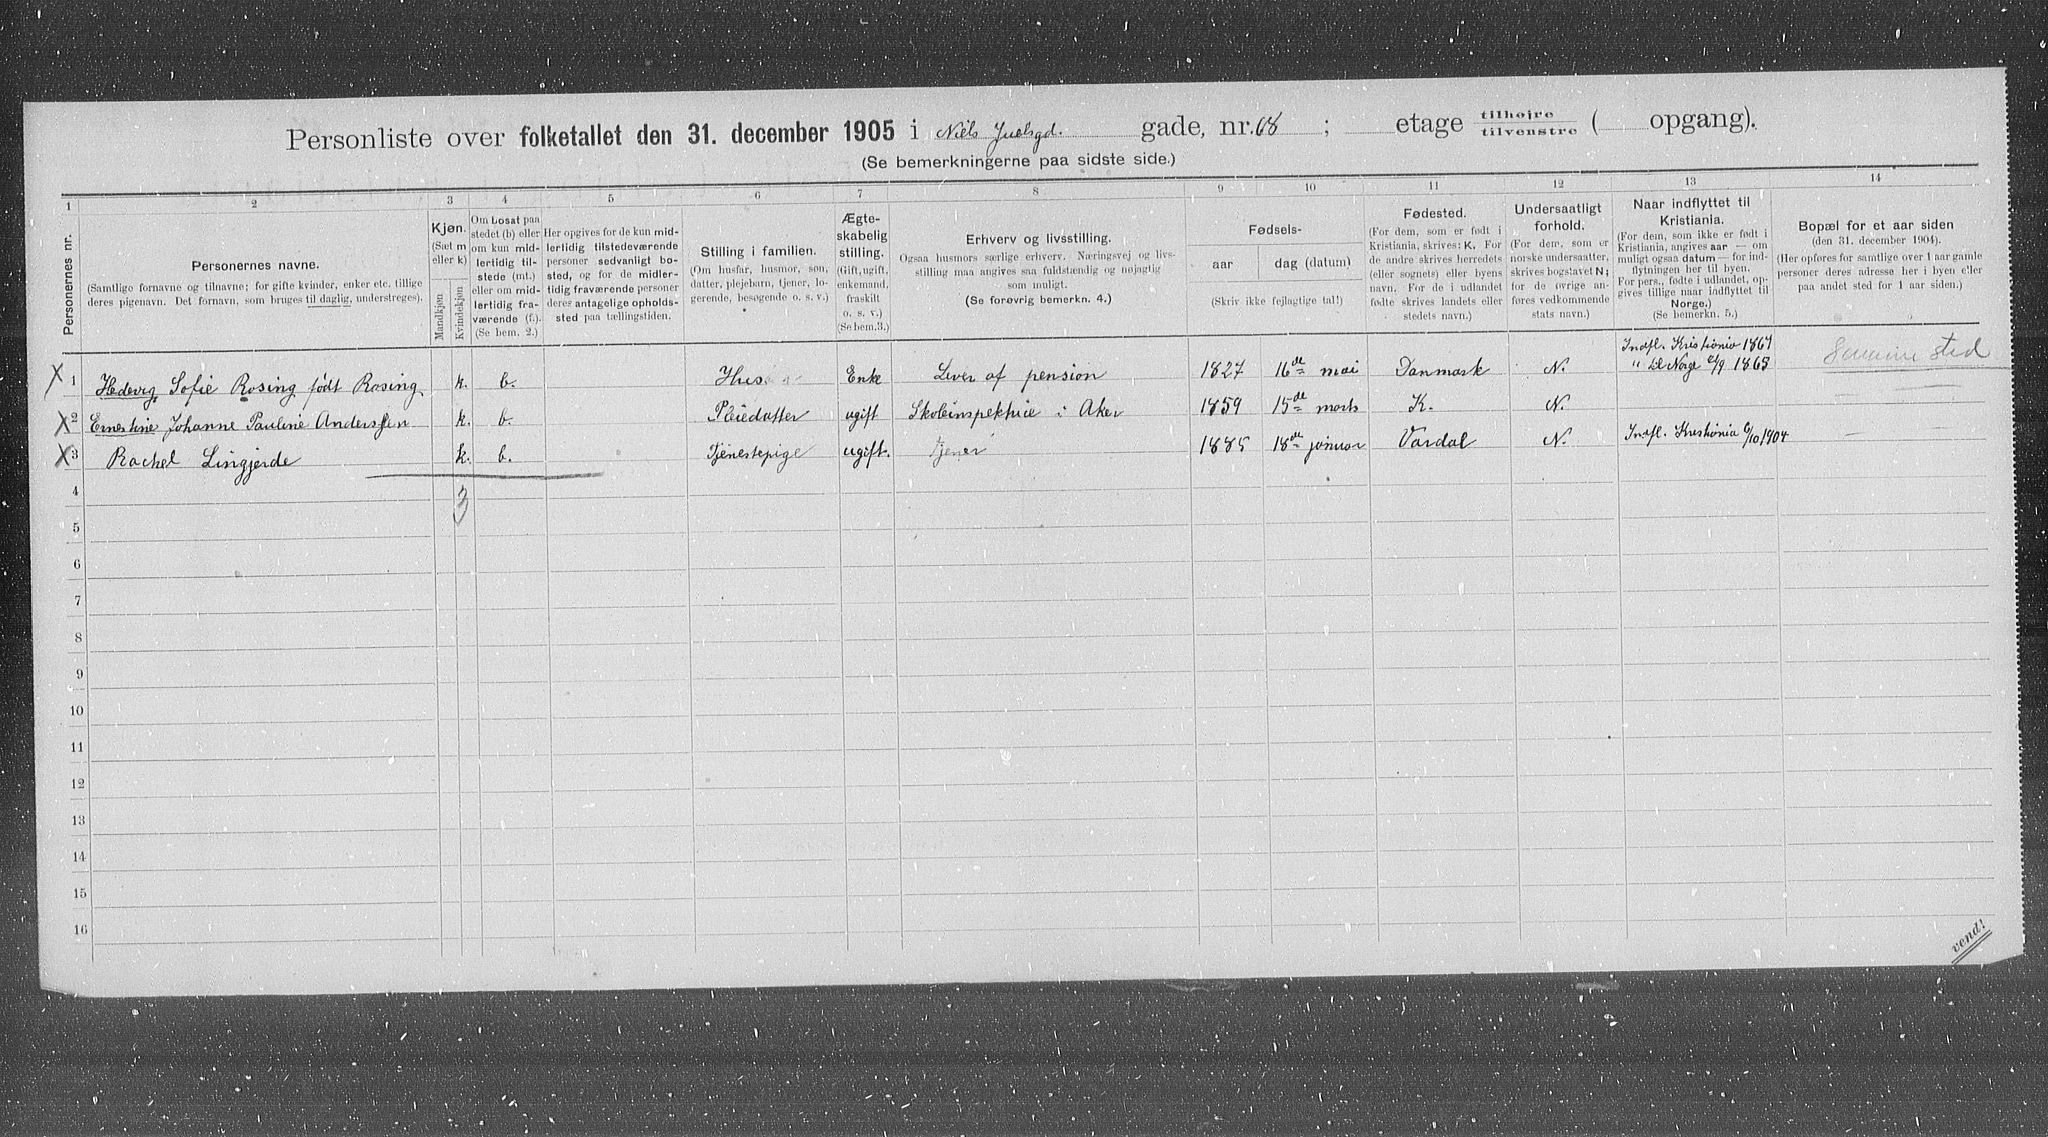 Personliste over folketallet den 31. december 1905 i Niels Juelsgd. gade, nr. 68 ; etage tilhøjre tilvenstre ( opgang).
(Se bemerkningerne paa sidste side.)
1 2 3 4 5 6 7 8 9 10 11 12 13 14
Personernes nr.
Personernes navne.
(Samtlige fornavne og tilnavne; for gifte kvinder, enker etc. tillige
deres pigenavn. Det fornavn, som bruges til daglig, understreges).
Kjøn.
(Sæt m
eller k)
Mandkjøn
Kvindekjøn
Om bosat paa
stedet (b) eller
om kun mid-
lertidig til-
stede (mt.)
eller om mid-
lertidig fra-
værende (f.).
(Se bem. 2.)
Her opgives for de kun mid-
lertidig tilstedeværende
personer sedvanligt bo-
sted, og for de midler-
tidig fraværende personer
deres antagelige opholds-
sted paa tællingstiden.
Stilling i familien.
(Om husfar, husmor, søn,
datter, plejebarn, tjener, lo-
gerende, besøgende o. s. v.)
Ægte-
skabelig
stilling.
(Gift, ugift,
enkemand,
fraskilt
o. s. v.)
(Se bem.3.)
Erhverv og livsstilling.
Ogsaa husmors særlige erhverv. Næringsvej og livs-
stilling maa angives saa fuldstændig og nøjagtig
som muligt.
(Se forøvrig bemerkn. 4.)
Fødsels-
aar
dag (datum)
(Skriv ikke fejlagtige tal!)
Fødested.
(For dem, som er født i
Kristiania, skrives: K. For
de andre skrives herredets
(eller sognets) eller byens
navn. For de i udlandet
fødte skrives landets eller
stedets navn.)
Undersaatligt
forhold.
(For dem, som er
norske undersaatter,
skrives bogstavet N;
for de øvrige an-
føres vedkommende
stats navn.)
Naar indflyttet til
Kristiania.
(For dem, som ikke er født i
Kristiania, angives aar — om
muligt ogsaa datum — for ind-
flytningen her til byen.
For pers., fødte i udlandet, op-
gives tillige naar indflyttet til
Norge.)
(Se bemerkn. 5.)
Bopæl for et aar siden
(den 31. december 1904).
(Her opføres for samtlige over 1 aar gamle
personer deres adresse her i byen eller
paa andet sted for 1 aar siden.)
X 1 Hedevig Sofie Rosing født Rosing k. b. Hus Enke Lever af pension 1827 16de mai Danmark N. Indfl. Kristiania 1867
" til Norge 1865 Samme sted
X 2 Ernestine Johanne Pauline Anderssen k. b. Pleiedatter ugift Skoleinspektrice i Aker 1859 15de marts K. N.
X 3 Rachel Lingjerde k. b. Tjenestepige ugift. tjener 1885 18de januar Vardal N. Indfl. Kristiania 6/10 1904 —
4 3
5
6
7
8
9
10
11
12
13
14
15
16
vend!